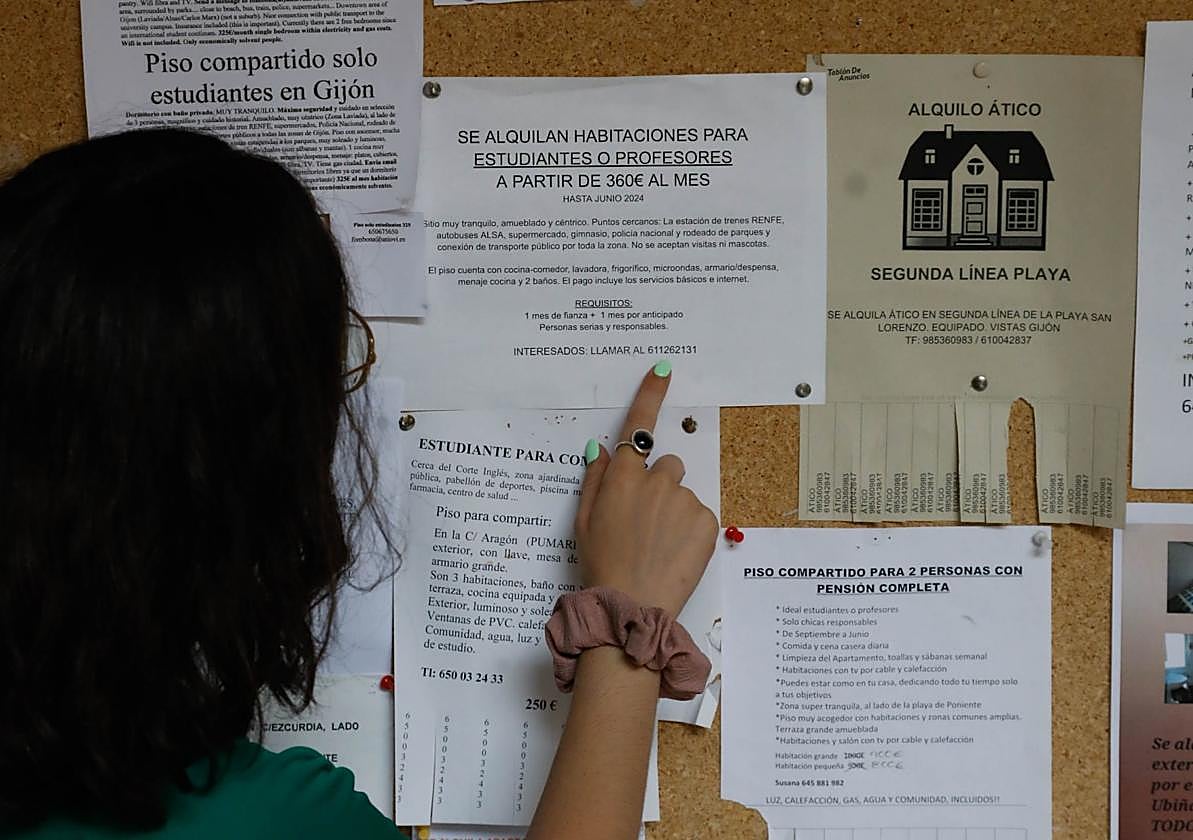 pantry. Wifi fibra and TV.
Gijon (Laviada/Alsa/Carlos Marx) (not a suburb). Nice connection with public transport to the
university campus. Insurance included (this is important). Currently there are 2 free bedrooms since
an international student continues. 325€/month single bedroom within electricity and gas costs.
Wifi is not included. Only economically solvent people.
Piso compartido solo
estudiantes en Gijón
Dormitorio con baño privado. MUY TRANQUILO. Máxima seguridad y cuidado en selección
de 3 personas, magnífico y cuidado historial. Amueblado, muy céntrico (Zona Laviada), al lado de
estaciones de tren RENFE, supermercados, Policía Nacional, rodeado de
públicos a todas las zonas de Gijón. Piso con ascensor, mucha
a los parques, muy soleado y luminoso,
(son sábanas y mantas). 1 cocina muy
armario/despensa, menaje: platos, cubiertos,
TV. Tiene gas ciudad. Envía email
dormitorios libres ya que un dormitorio
importante) 325€ al mes habitación
económicamente solventes.
Piso solo estudiantes 325
650675650
SE ALQUILAN HABITACIONES PARA
ESTUDIANTES O PROFESORES
A PARTIR DE 360€ AL MES
HASTA JUNIO 2024
Sitio muy tranquilo, amueblado y céntrico. Puntos cercanos: La estación de trenes RENFE,
autobuses ALSA, supermercado, gimnasio, policía nacional y rodeado de parques y
conexión de transporte público por toda la zona. No se aceptan visitas ni mascotas.
El piso cuenta con cocina-comedor, lavadora, frigorífico, microondas, armario/despensa,
menaje cocina y 2 baños. El pago incluye los servicios básicos e internet.
REQUISITOS:
1 mes de fianza + 1 mes por anticipado
Personas serias y responsables.
INTERESADOS: LLAMAR AL 611262131
Tablón De
Anuncios
ALQUILO ÁTICO
SEGUNDA LÍNEA PLAYA
SE ALQUILA ÁTICO EN SEGUNDA LÍNEA DE LA PLAYA SAN
LORENZO. EQUIPADO. VISTAS GIJÓN
TF: 985360983 / 610042837
ÁTICO
985360983
610042847
ESTUDIANTE PARA COM
Cerca del Corte Inglés, zona ajardinada
pública, pabellón de deportes, piscina m
farmacia, centro de salud ...
Piso para compartir:
En la C/ Aragón (PUMARI
exterior, con llave, mesa de
armario grande.
Son 3 habitaciones, baño con
terraza, cocina equipada y
Exterior, luminoso y sole
Ventanas de PVC. calefa
Comunidad, agua, luz y
de estudio.
Tl: 650 03 24 33
250 €
C/EZCURDIA, LADO
PISO COMPARTIDO PARA 2 PERSONAS CON
PENSIÓN COMPLETA
* Ideal estudiantes o profesores
* Solo chicas responsables
* De Septiembre a Junio
* Comida y cena casera diaria
* Limpieza del Apartamento, toallas y sábanas semanal
* Habitaciones con tv por cable y calefacción
*Puedes estar como en tu casa, dedicando todo tu tiempo solo
a tus objetivos
*Zona super tranquila, al lado de la playa de Poniente
*Piso muy acogedor con habitaciones y zonas comunes amplias.
Terraza grande amueblada
*Habitaciones y salón con tv por cable y calefacción
Habitación grande
Habitación pequeña
Susana 645 881 982
LUZ, CALEFACCIÓN, GAS, AGUA Y COMUNIDAD, INCLUIDOS!!
Se al
exter
por e
Ubiñ
TODO